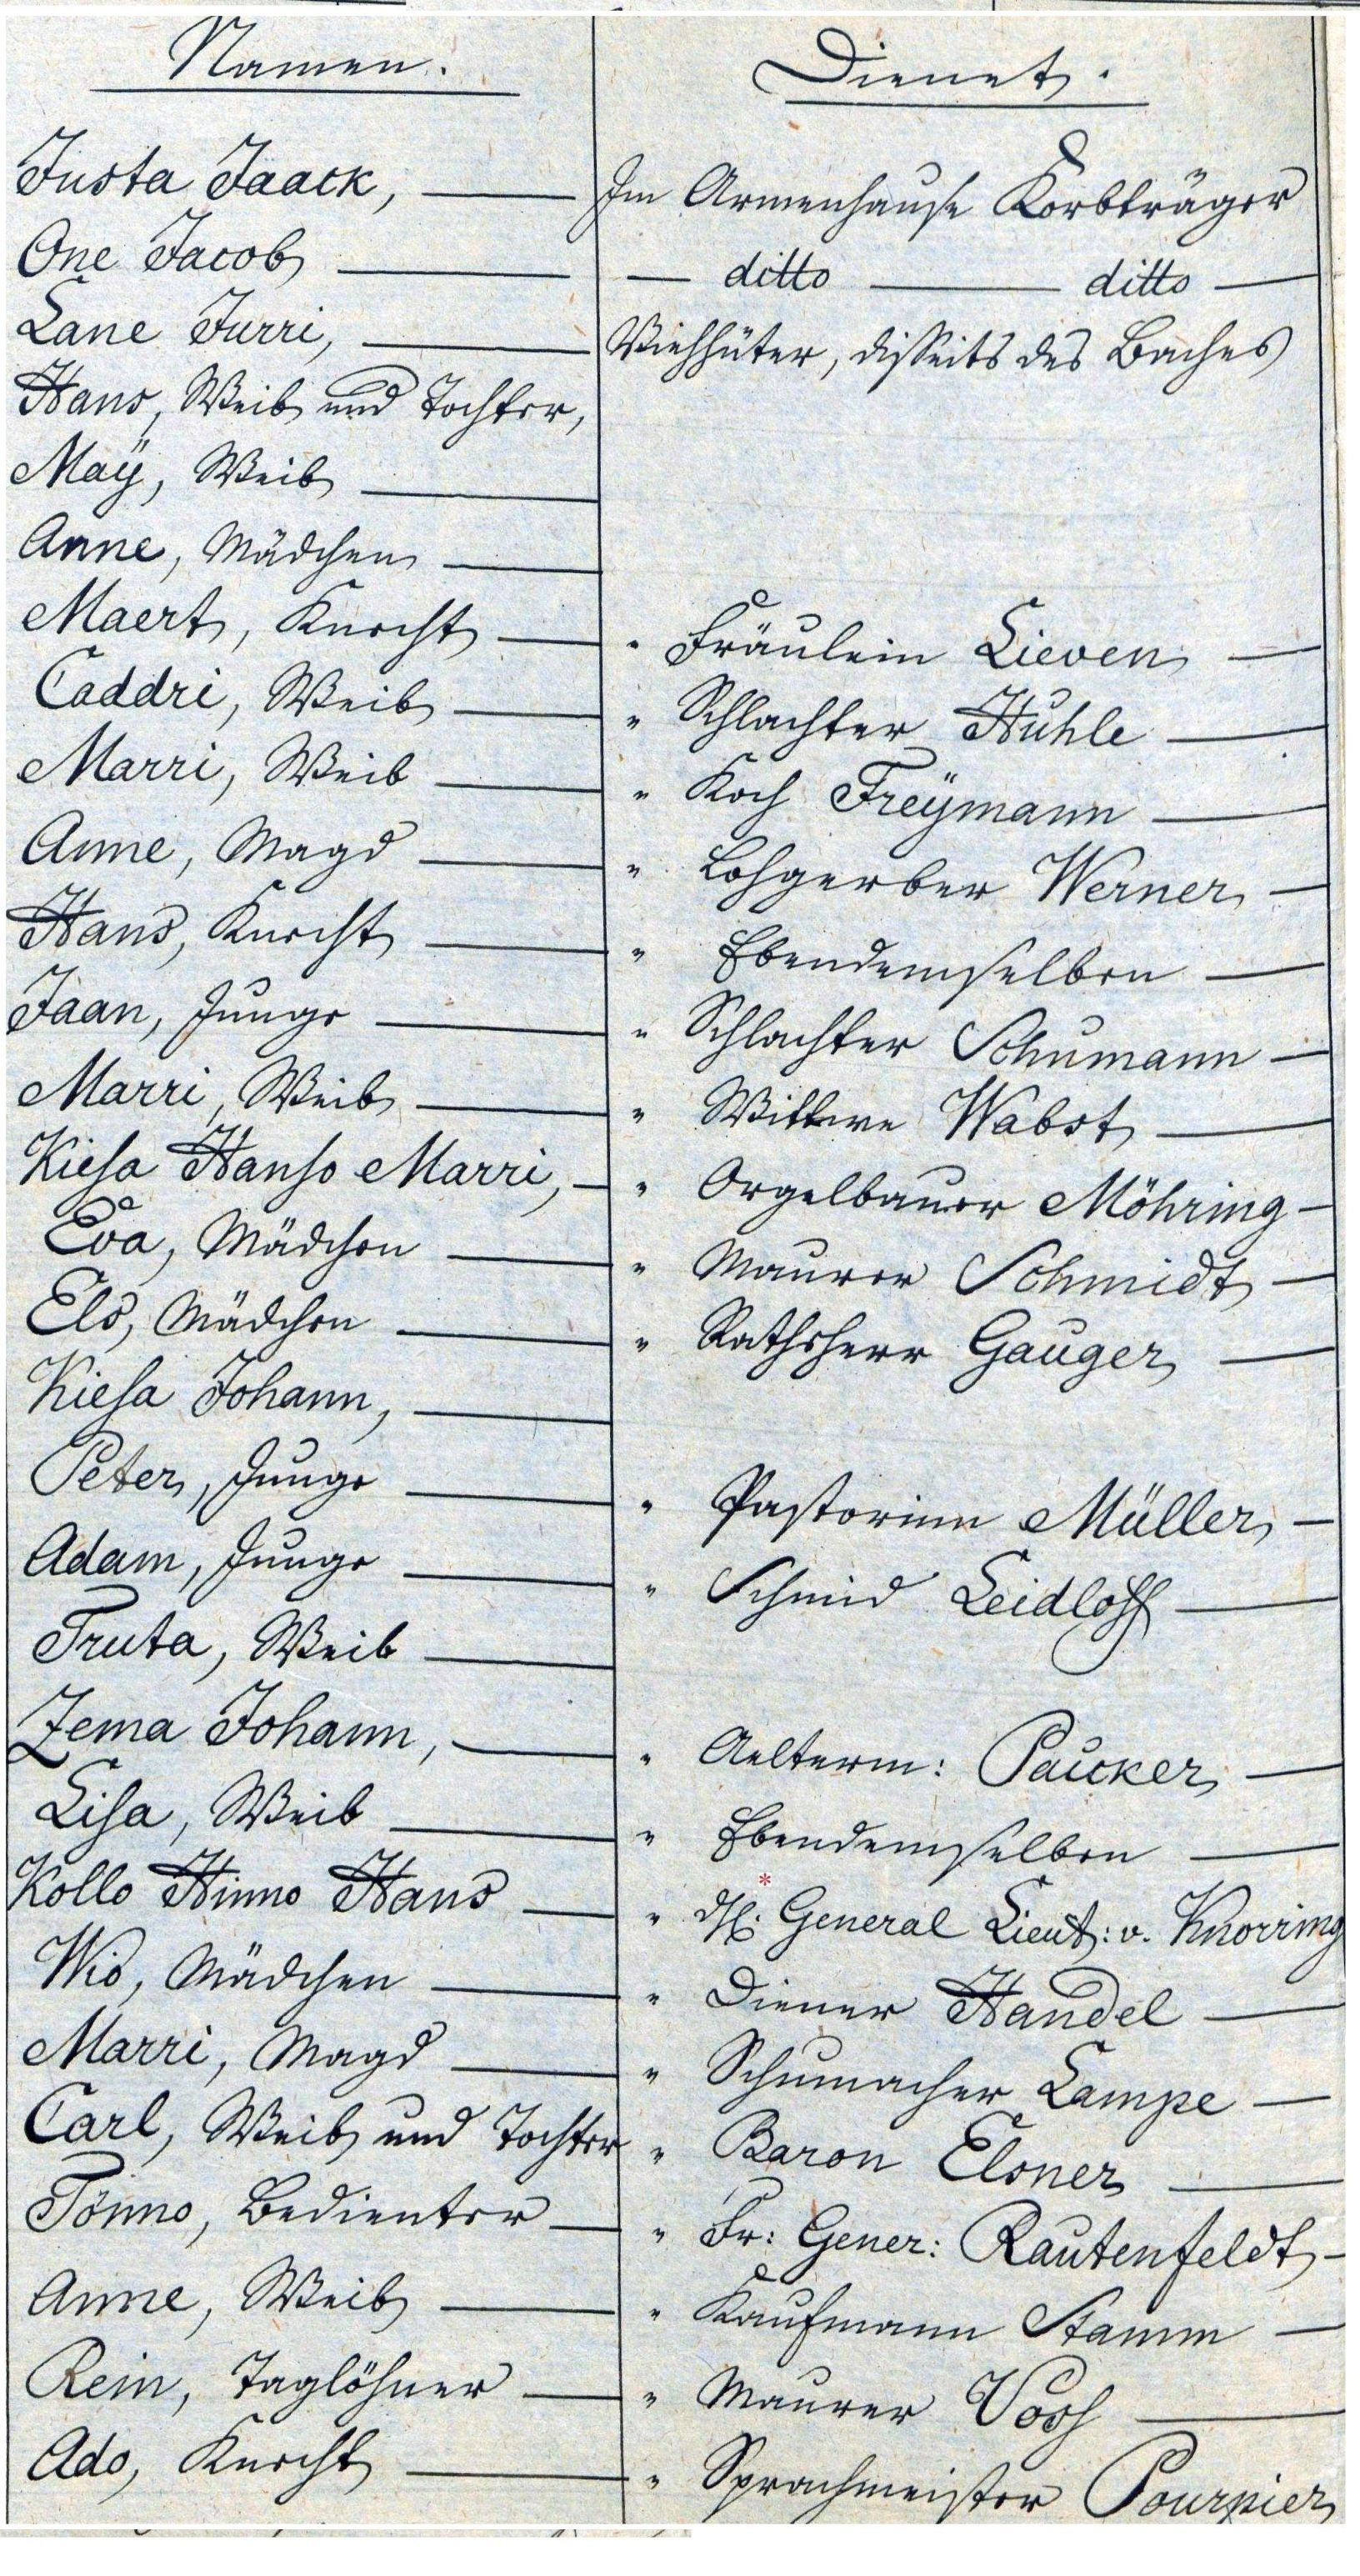 Namen. Dienet.
Justa Jaack, Im Armenhause Korbträger
One Jacob — ditto — ditto —
Lane Jurri, Viehhüter, disseits des Baches
Hans, Weib und Tochter,
Maÿ, Weib
Anne, Mädchen
Maert, Knecht " Fräulein Lieven
Caddri, Weib " Schlachter Hühle
Marri, Weib " Koch Freÿmann
Anne, Magd " Lohgerber Werner
Hans, Knecht " Ebendemselben
Jaan, Junge " Schlachter Schumann
Marri, Weib " Wittwe Wabst
Kiesa Hanso Marri, " Orgelbauer Möhring
Eva, Mädchen " Maurer Schmidt
Els, Mädchen " Rathsherr Gauger
Kiesa Johann,
Peter, Junge " Pastorinn Müller
Adam, Junge " Schmid Leidloff
Truta, Weib
Zema Johann, " Aelterm: Paucker
Lisa, Weib " Ebendemselben
Kollo Hinno Hans " H. General Lieut: v. Knorring
Wio, Mädchen " Diener Handel
Marri, Magd " Schumacher Lampe
Carl, Weib und Tochter " Baron Elsner
Tönno, Bedienter " Fr: Gener: Rautenfeldt
Anne, Weib " Kaufmann Stamm
Rein, Taglöhner " Maurer Voss
Ado, Knecht " Sprachmeister Pournier